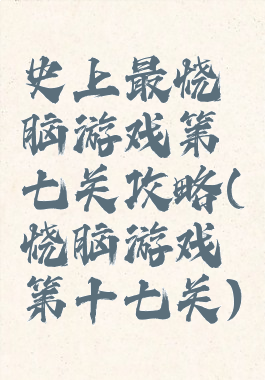 史上最烧
脑游戏第
七关攻略(
烧脑游戏
第十七关)